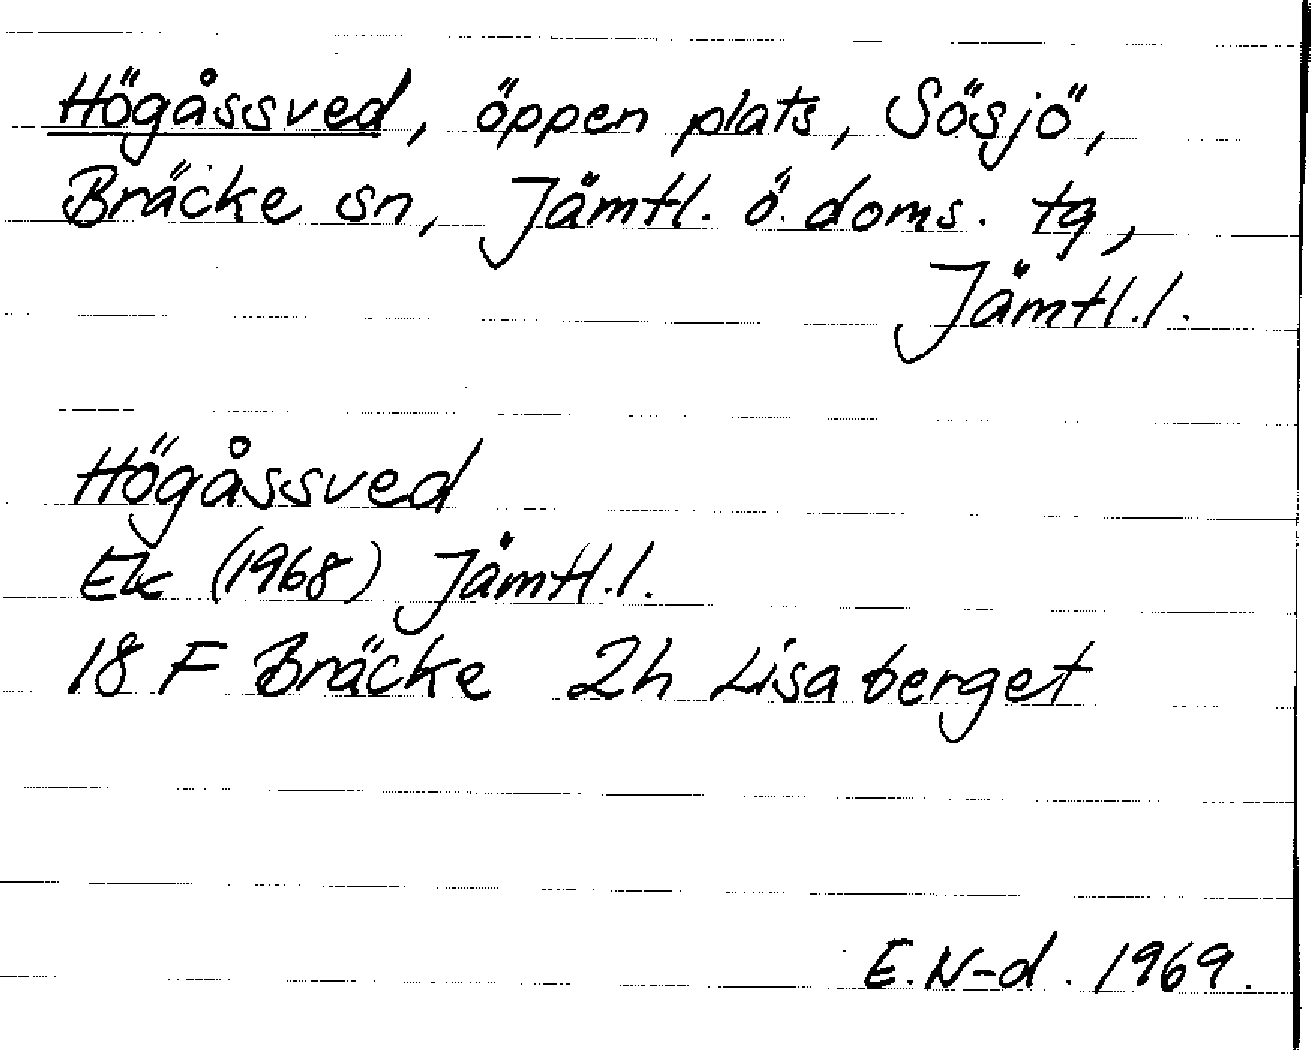 Högåssved, öppen plats, Sösjö,
Bräcke sn, Jämtl. ö. doms. tg,
Jämtl.l.
Högåssved
Ek (1968) Jämtl.l.
18 F Bräcke 2h Lisaberget
E.N-d. 1969.